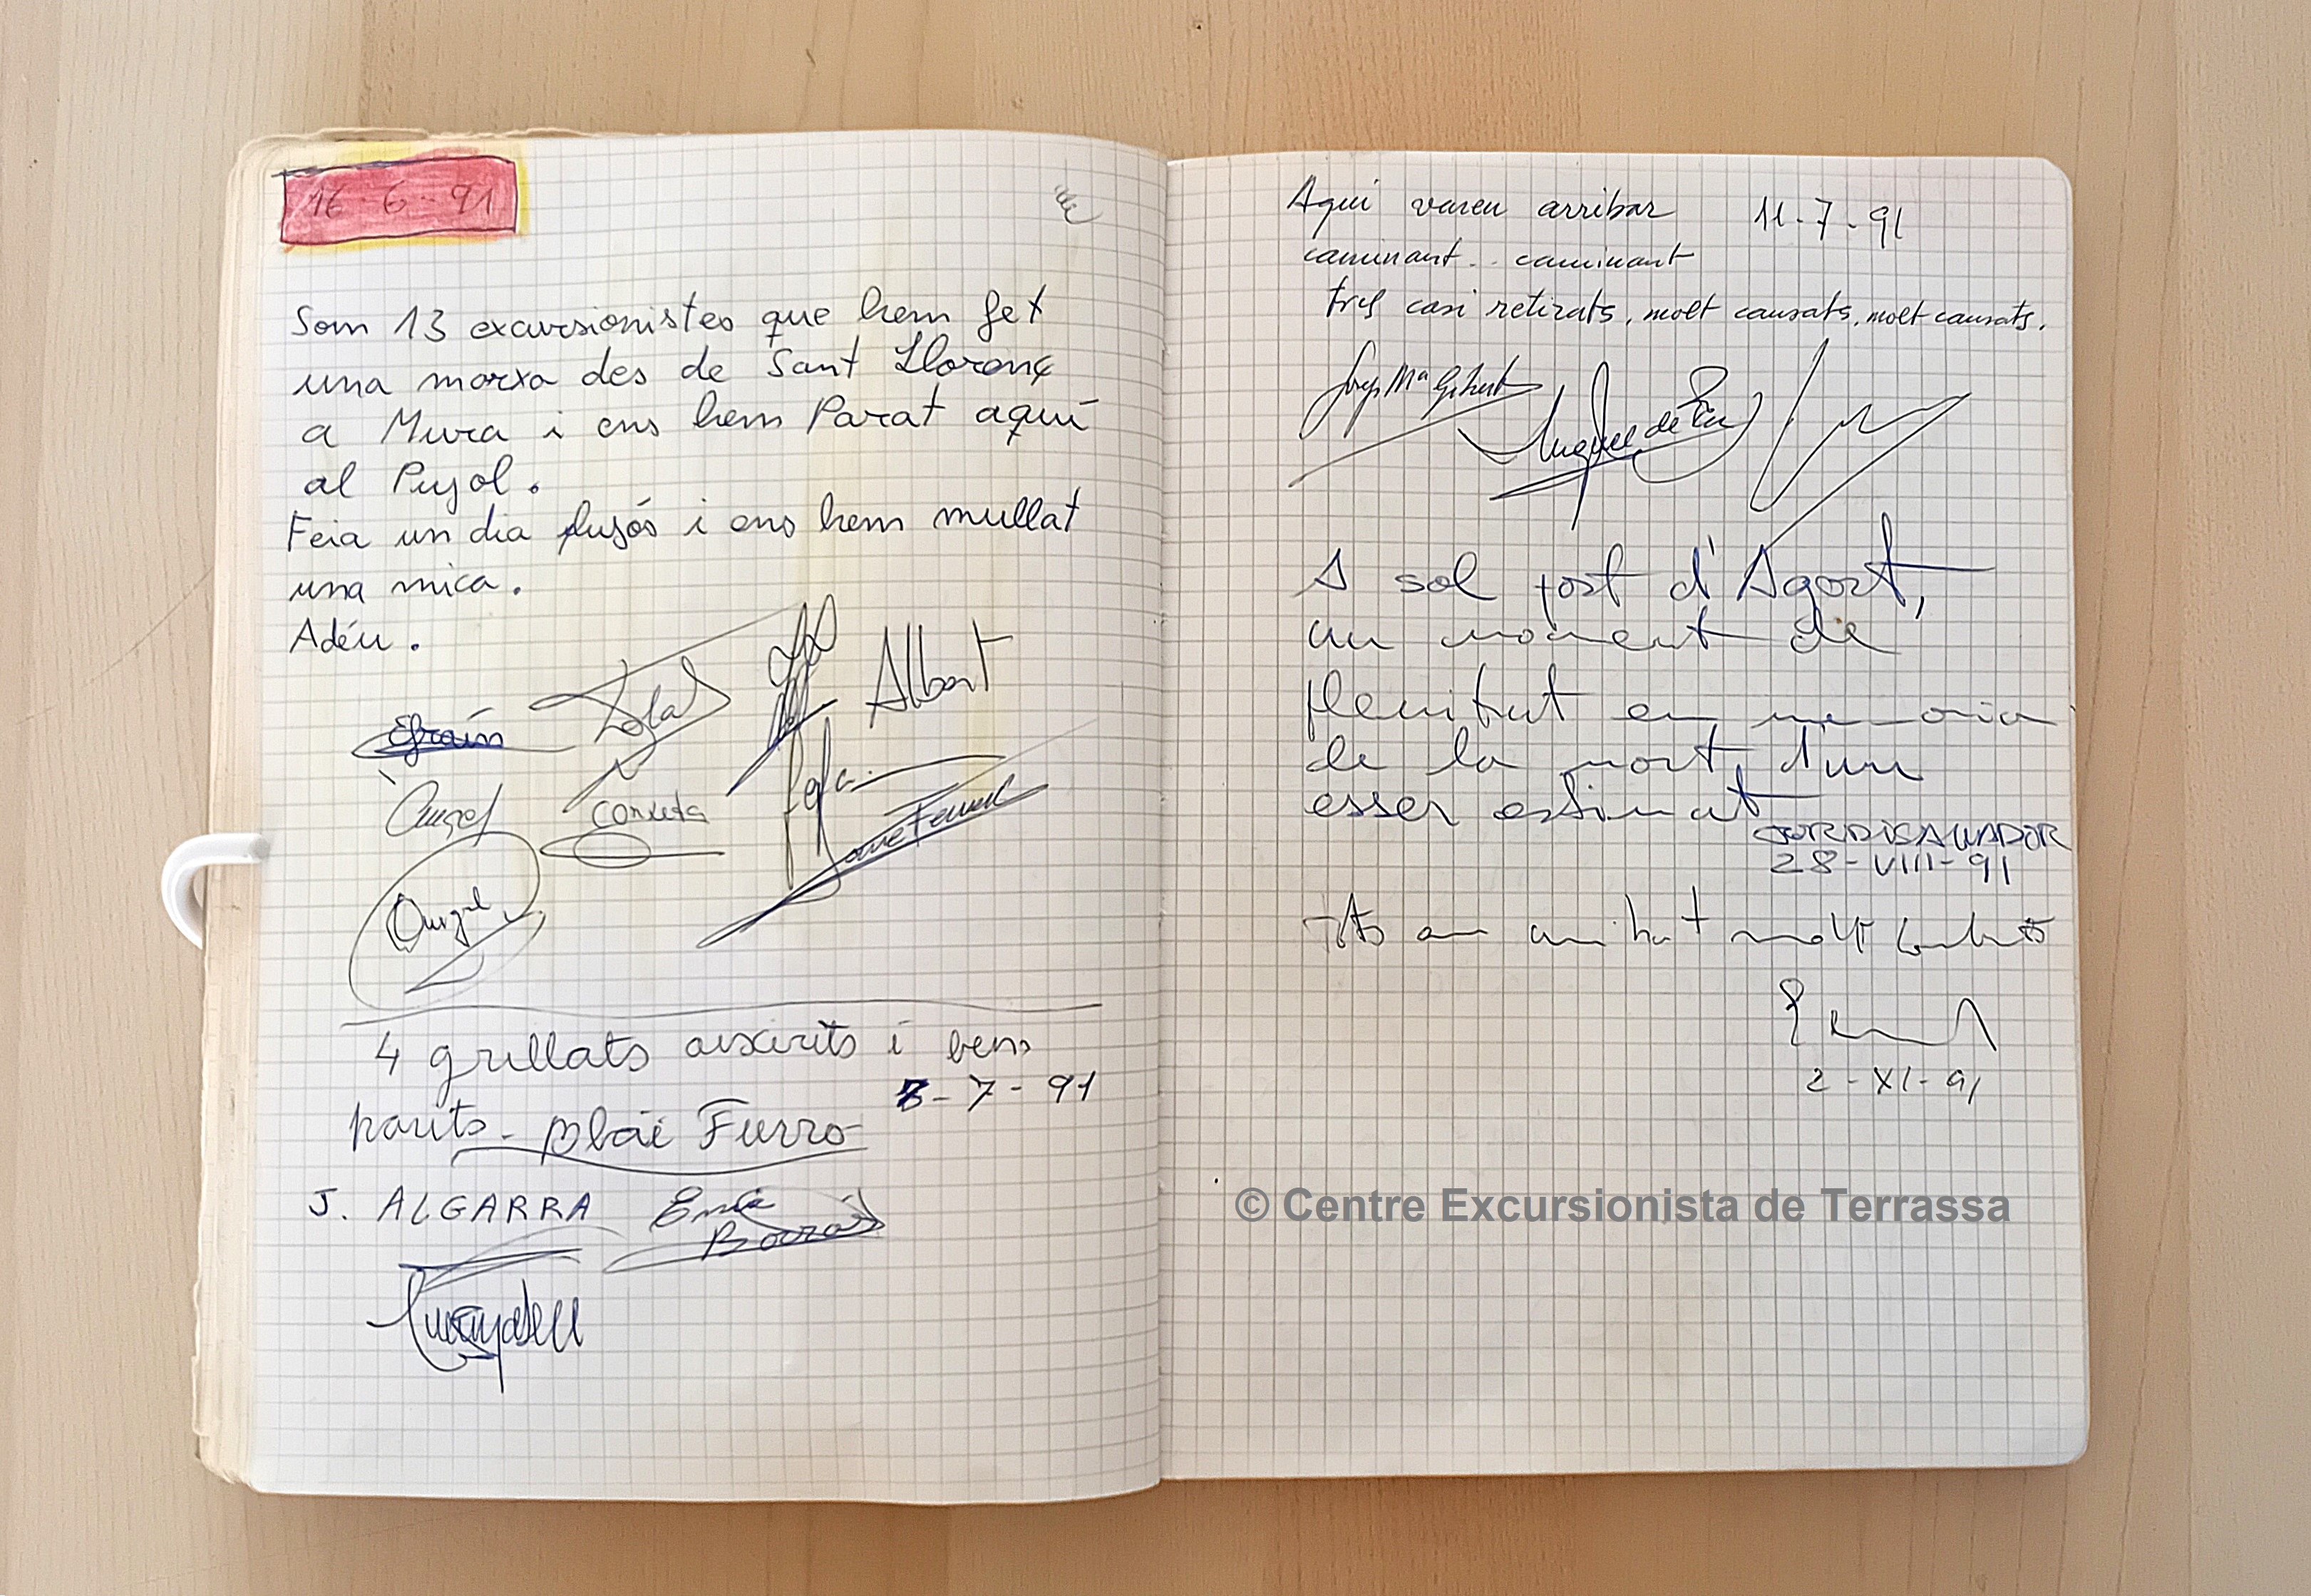 16-6-91
Som 13 excursionistes que hem fet
una marxa des de Sant Llorenç
a Mura i ens hem Parat aquí
al Pujol.
Feia un dia plujós i ens hem mullat
una mica.
Adéu.
Efraín Lola Albert
Àngel Conxita Pepa
Àngel Jaume Ferrer
4 grillats aixerits i bens
7-91
parits - Blai Furró
J. ALGARRA Enric
Borrás
Aqui vareu arribar 11-7-91
caminant.. caminant
tres casi retirats, molt cansats, molt cansats.
Josep Mª Gibert Miguel de
A sol post d'Agost,
un moment de
plenitut en memoria
de la mort, d'un
esser estimat
JORDI SALVADOR
28-VIII-91
molt
2-XI-91
© Centre Excursionista de Terrassa